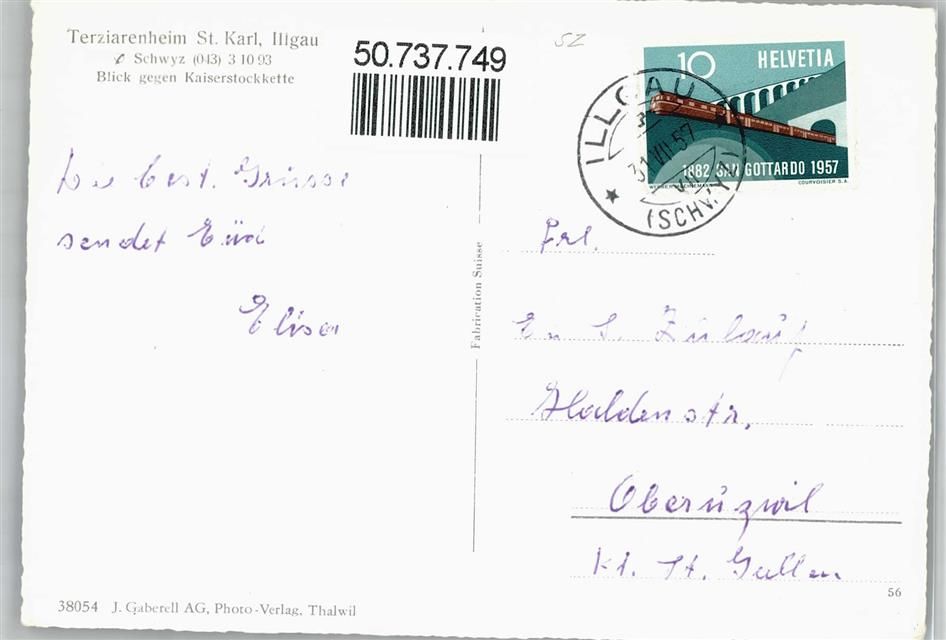 Terziarenheim St. Karl, Illgau
✆ Schwyz (043) 3 10 93
Blick gegen Kaiserstockkette
50.737.749
SZ
10 HELVETIA
1882 SAN GOTTARDO 1957
COURVOISIER S.A.
ILLGAU
31.VII.57
(SCHWYZ)
Die best. Grüsse
sendet Eüch
Elisa
Fabrication Suisse
Frl.
Zülauf
Haldenstr.
Oberüzwil
Kt. St. Gallen
56
38054 J. Gaberell AG, Photo-Verlag, Thalwil